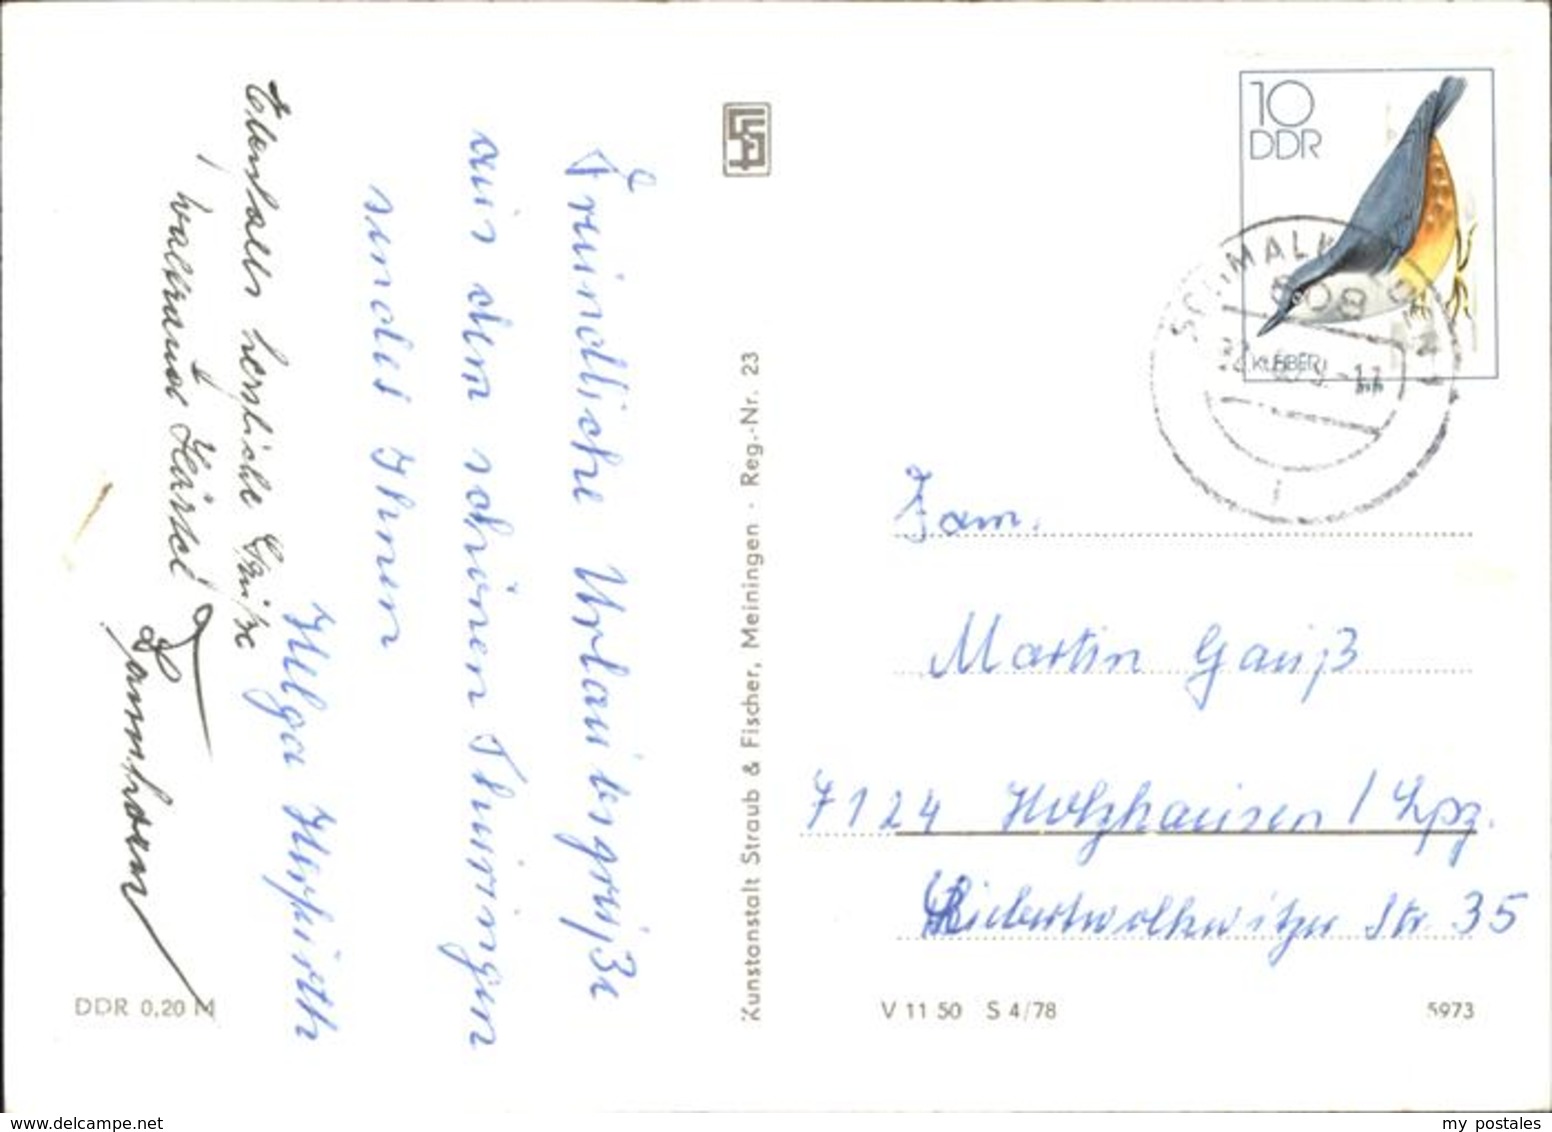 Freundliche Urlaubsgrüße
aus dem schönen Thüringen
sendet Ihnen
Helga Herpirth
Ebenfalls herzliche Grüße
Waltraud
Kunstanstalt Straub & Fischer, Meiningen · Reg.-Nr. 23
10
DDR
KLEIBER
SCHMALKALDEN
608
Fam.
Martin Gauß
7124 Holzhausen / Lpz.
Liebertwolkwitzer Str. 35
DDR 0,20 M
V 11 50 S 4/78
5973
www.delcampe.net
my_postales